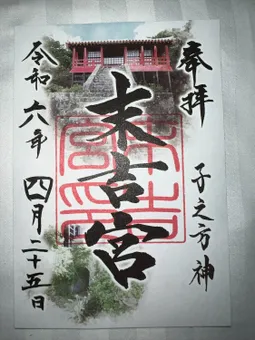 奉拝
子之方神
末吉宮
令和六年
四月二十五日